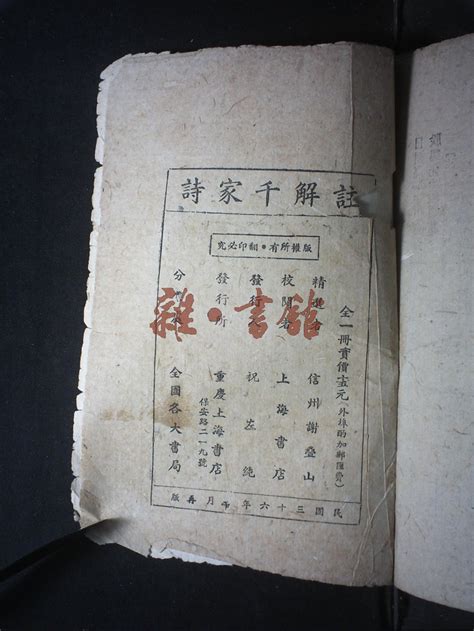 註解千家詩
版權所有・翻印必究
全一冊實價 元(外埠酌加郵匯費)
精選者 信州謝疊山
校閱者 上海書店
發行人 祝志純
發行所 重慶上海書店
保安路二一九號
分 全國各大書局
民國三十六年 月再版
雜・書館